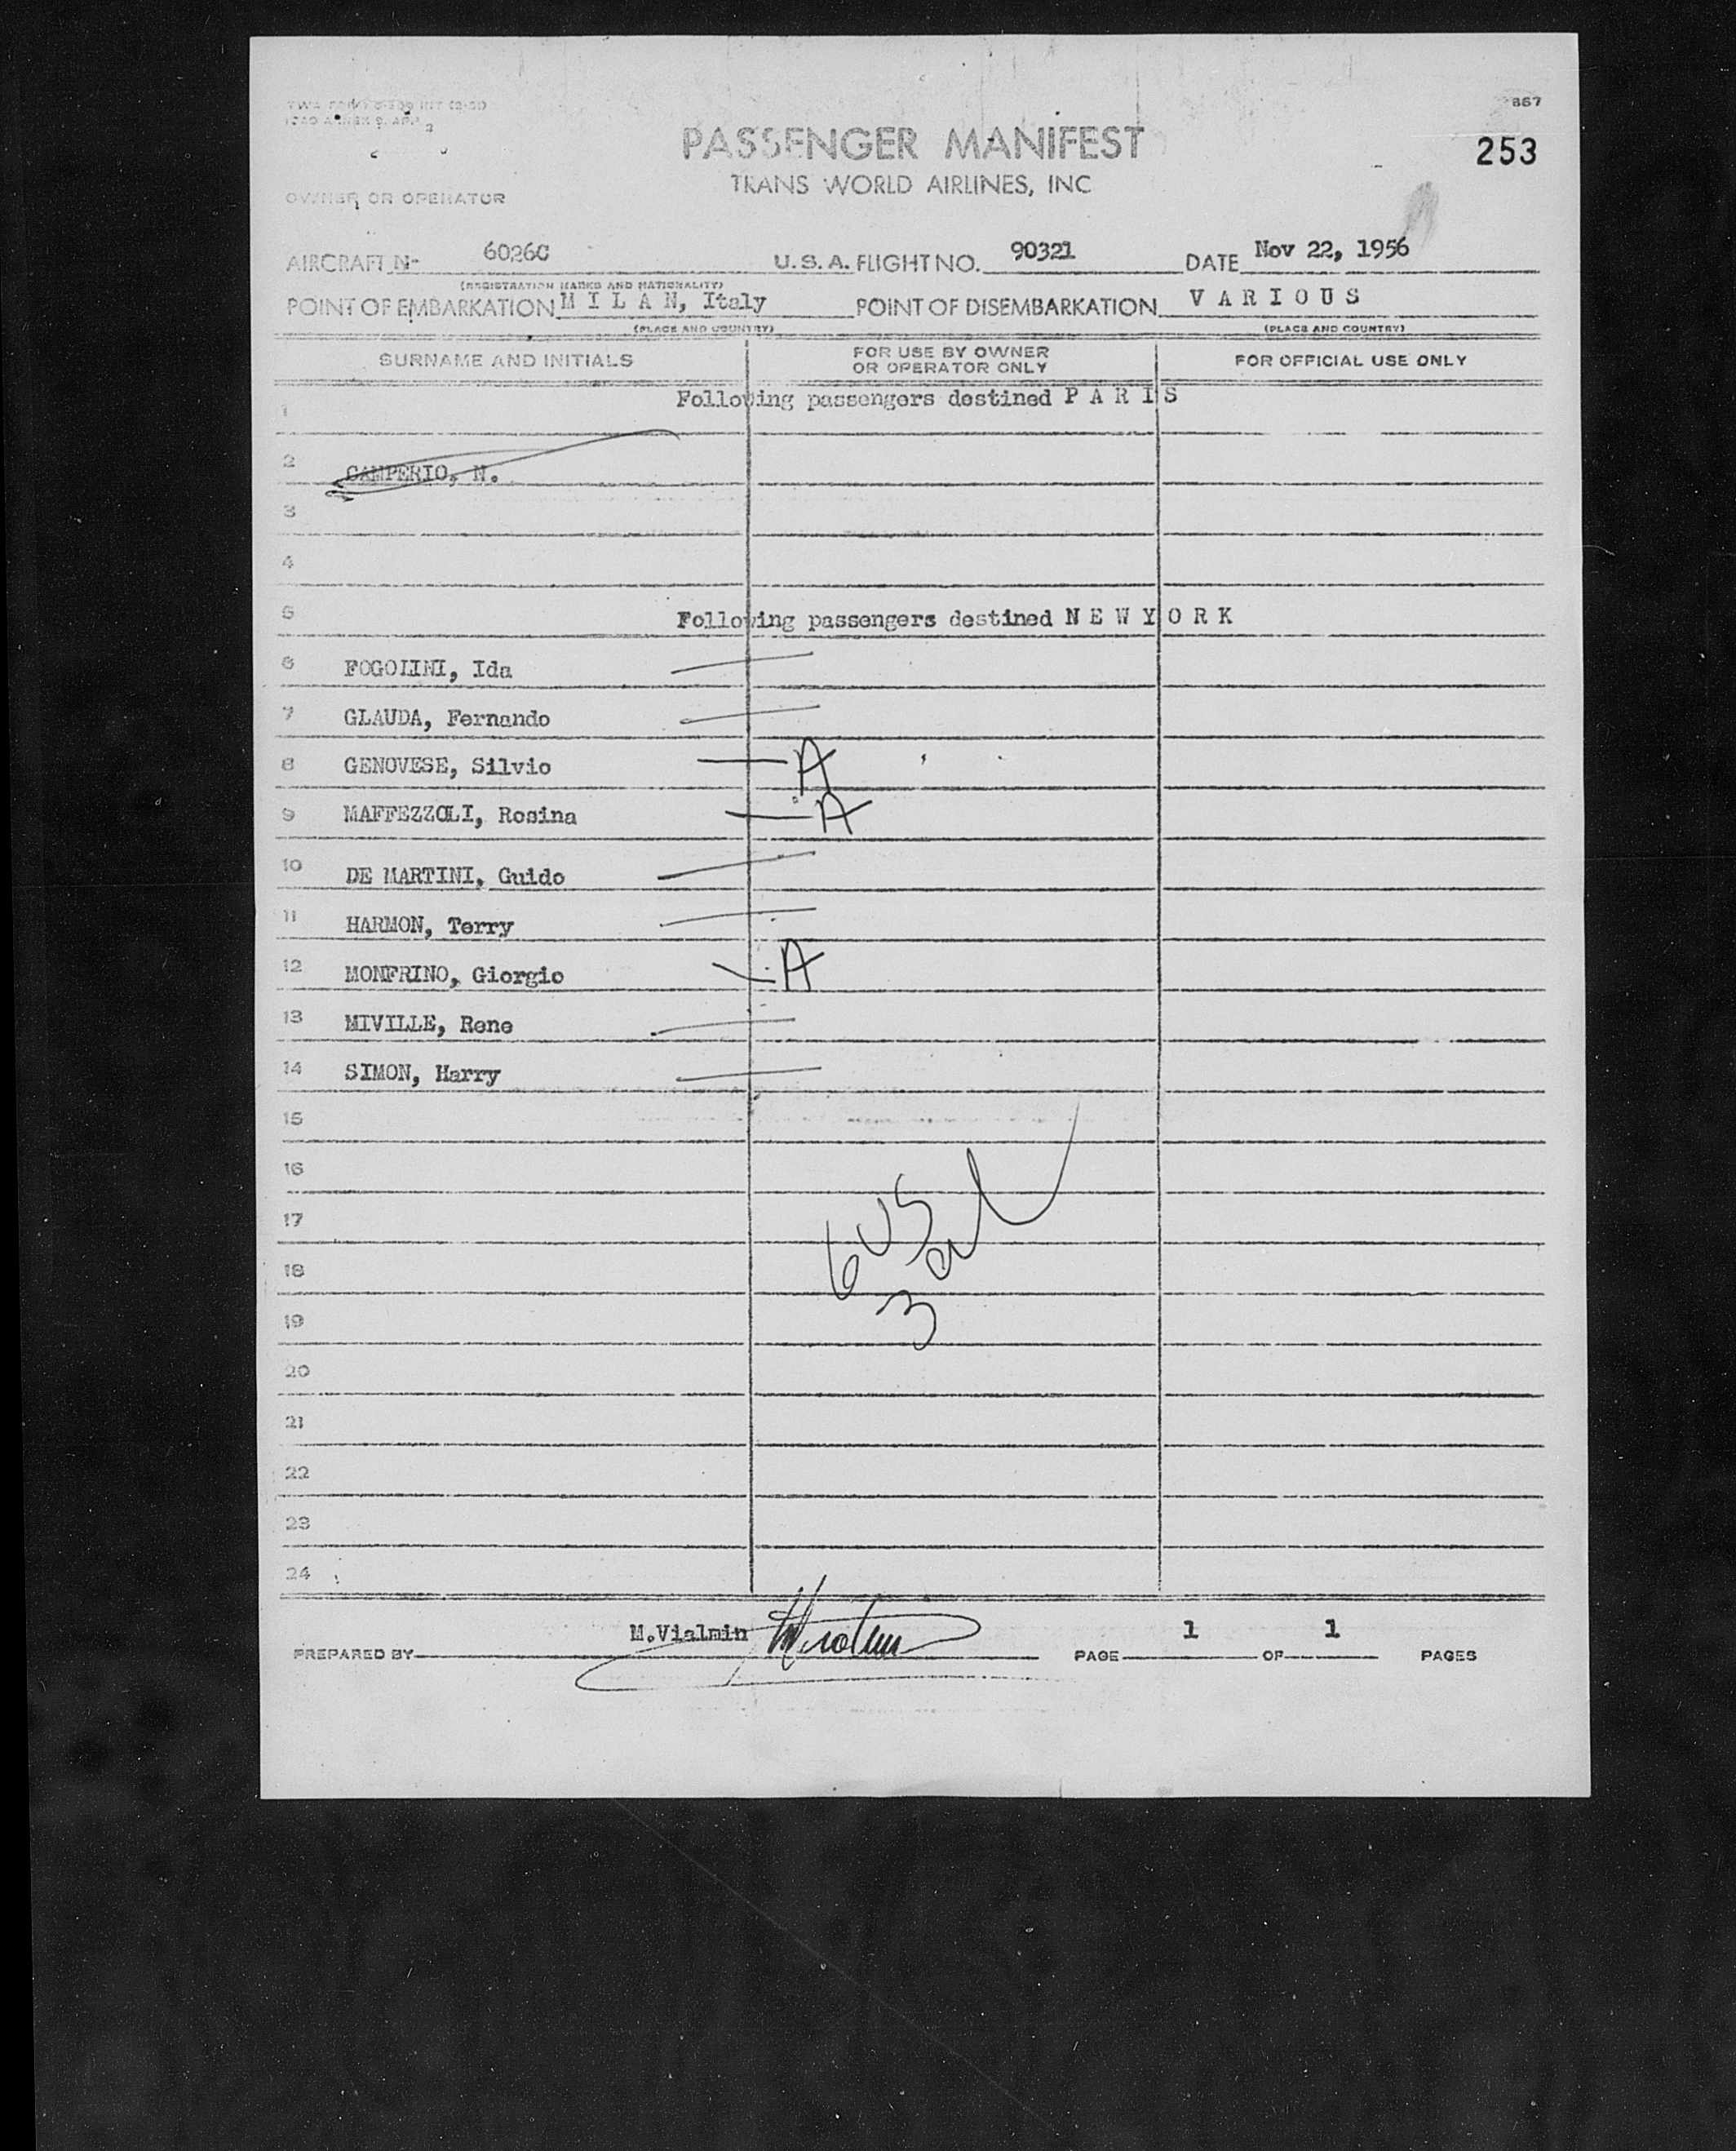 867
253
PASSENGER MANIFEST
TRANS WORLD AIRLINES, INC
OWNER OR OPERATOR
AIRCRAFT N- 6026C U.S.A. FLIGHT NO. 90321 DATE Nov 22, 1956
(REGISTRATION MARKS AND NATIONALITY)
POINT OF EMBARKATION M I L A N, Italy POINT OF DISEMBARKATION V A R I O U S
(PLACE AND COUNTRY) (PLACE AND COUNTRY)
SURNAME AND INITIALS FOR USE BY OWNER OR OPERATOR ONLY FOR OFFICIAL USE ONLY
1 Following passengers destined P A R I S
2 CAMPERIO, N.
3
4
5 Following passengers destined N E W Y O R K
6 FOGOLINI, Ida
7 GLAUDA, Fernando
8 GENOVESE, Silvio A
9 MAFFEZZOLI, Rosina A
10 DE MARTINI, Guido
11 HARMON, Terry
12 MONFRINO, Giorgio A
13 MIVILLE, Rene
14 SIMON, Harry
15
16
17 6 US
18
19 3
20
21
22
23
24
PREPARED BY M.Vialmin PAGE 1 OF 1 PAGES